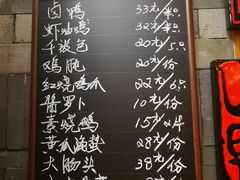 卤鸭 33元/半只
虾油鸡 32元/半只
千张包 20元/5只
鸡肫 20元/份
红烧鸡爪 22元/6只
酱萝卜 10元/份
素烧鹅 15元/2片
苦瓜 28元/份
大肠头 38元/份